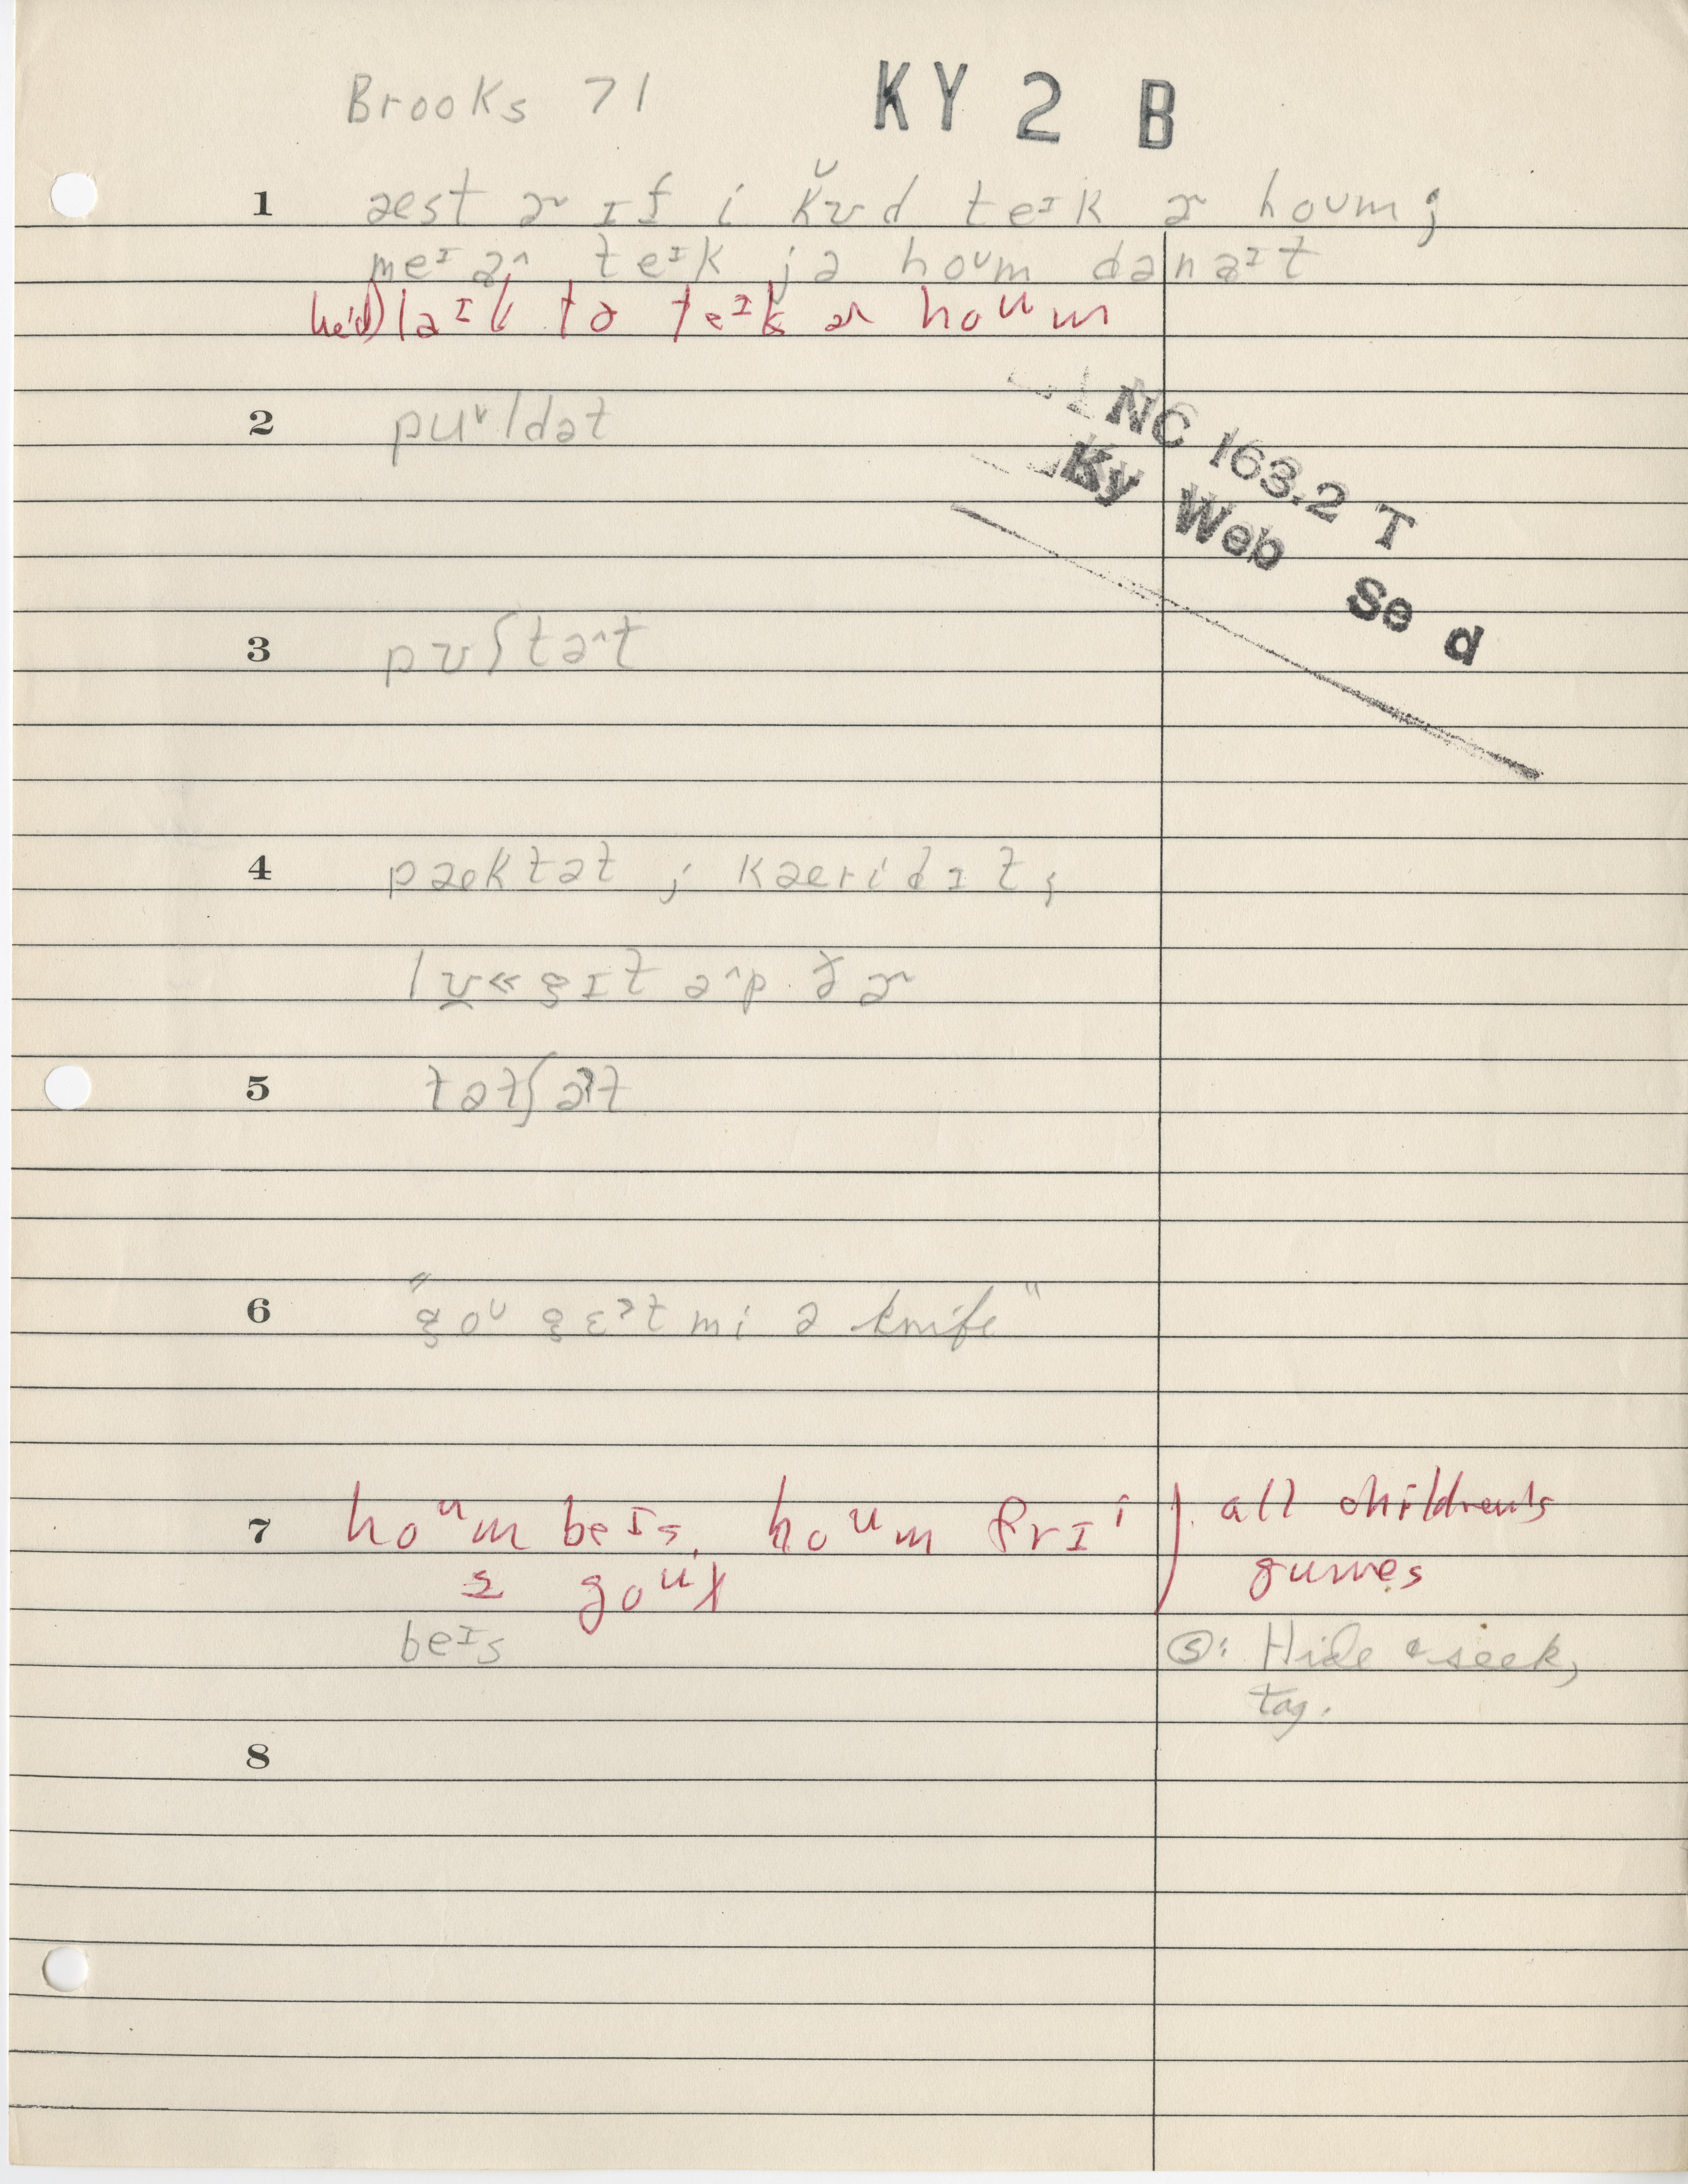 Brooks 71 KY 2 B
1 aest ɚ ɪf i kʊ̆d teᶦk ɚ houm;
meᶦ aᶦ teᶦk jə hoᵘm dənaᶦt
he'd) laᶦk tə teᶦk ɚ hoᵘm
NC 163.2 T
Ky Web Se d
2 puᵛldət
3 pʊʃtə^t
4 paektət ; kaeridɪt ;
gɪt ə^p
5
6 "goᵁ gɛᵊt mi ə knife"
7 hoᵘm beᶦs, hoᵘm frɪⁱ ) all children's
goᵘl games
beᶦs Ⓢ: Hide & seek,
tag.
8